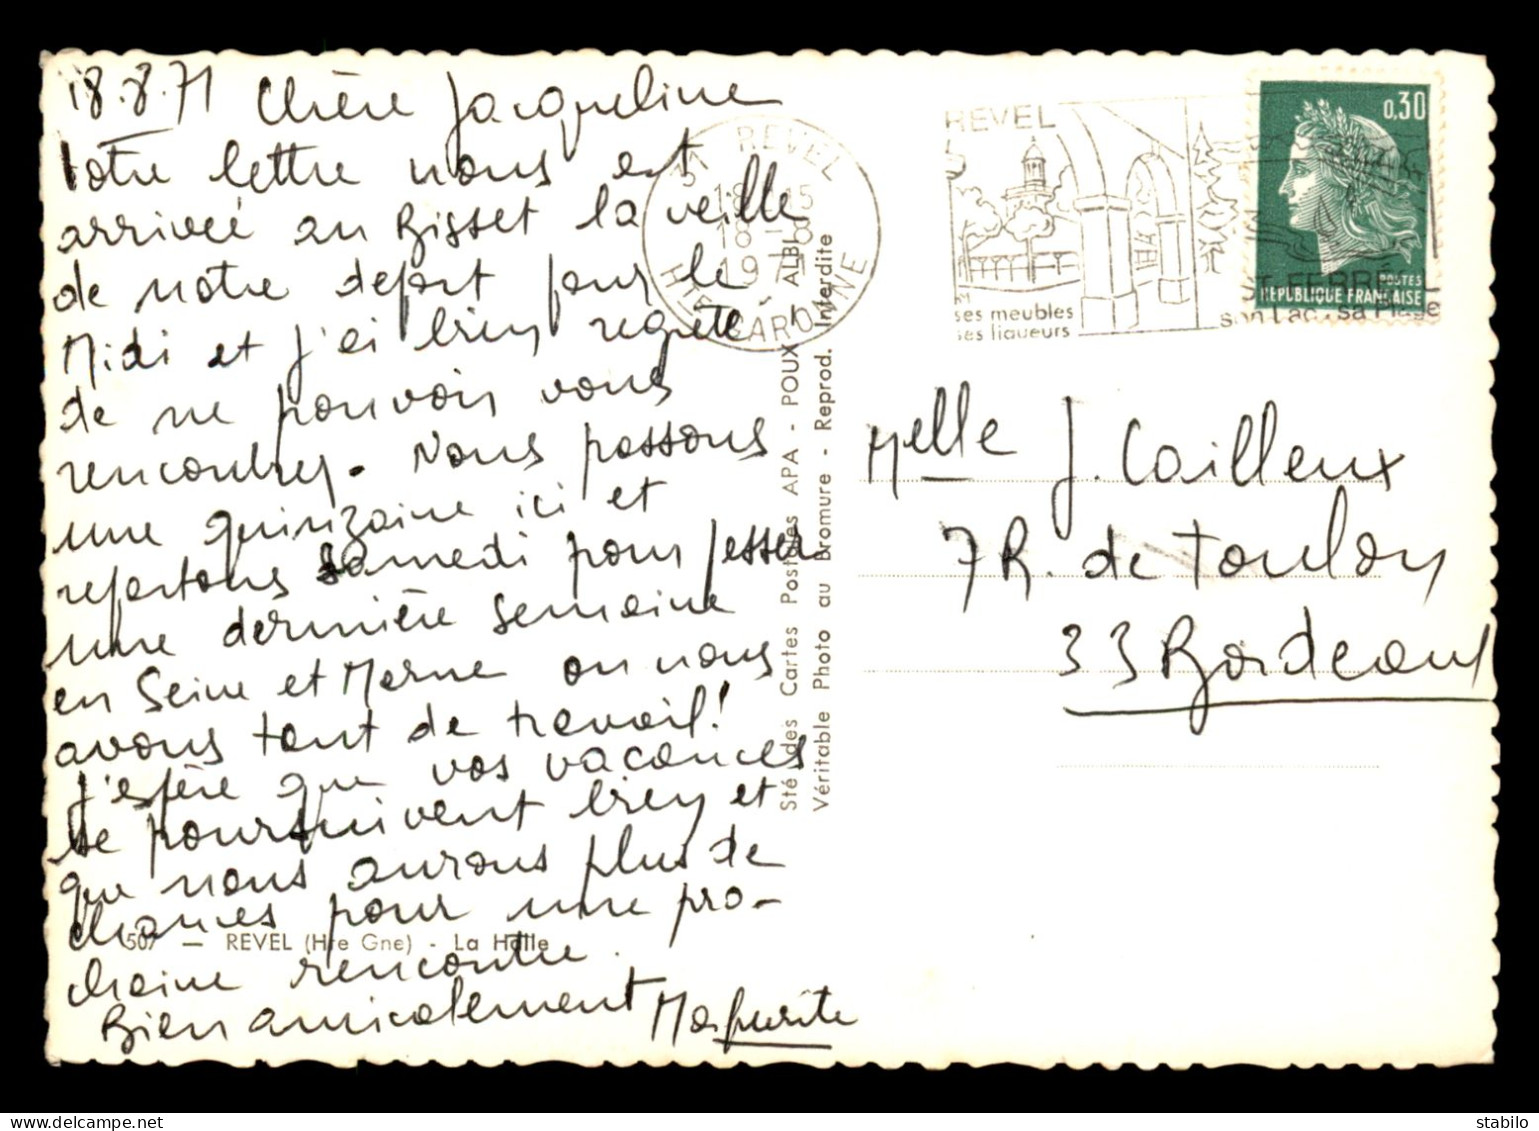 18.8.71 Chère Jacqueline
Votre lettre nous est
arrivée au Bisset la veille
de notre départ pour le
Midi et j'ai bien regretté
de ne pouvoir vous
rencontrer. Nous passons
une quinzaine ici et
repartons samedi pour passer
une dernière semaine
en Seine et Marne où nous
avons tant de travail!
J'espère que vos vacances
se poursuivent bien et
que nous aurons plus de
chances pour une pro-
chaine rencontre.
Bien amicalement Marguerite
507 — REVEL (Hte Gne) - La Halle
Sté des Cartes Postales APA - POUX - ALBI
Véritable Photo au Bromure - Reprod. Interdite
31 REVEL
18 H 15
18 - 8
1971
Hte GARONNE
REVEL
ses meubles
ses liqueurs
ST FERRÉOL
son Lac, sa Plage
0,30
POSTES
REPUBLIQUE FRANÇAISE
Melle J. Cailleux
7 R. de Toulon
33 Bordeaux
stabilo for delcampe.net